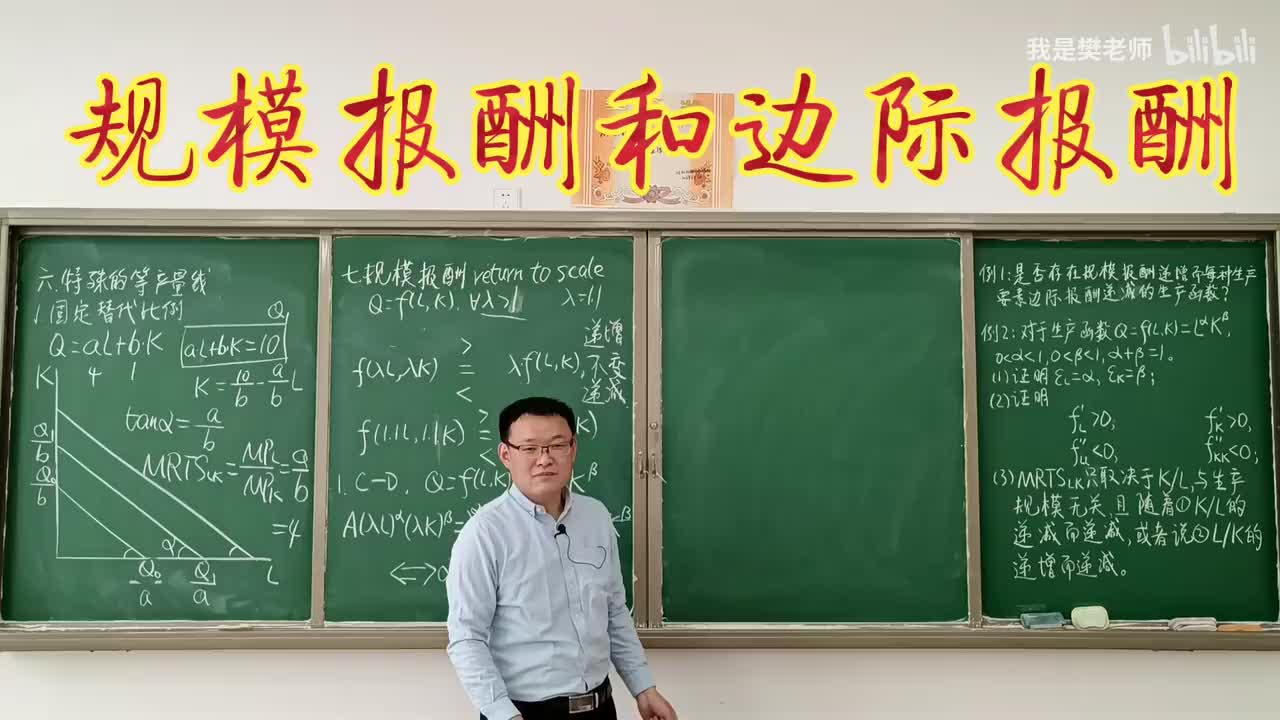 我是樊老师 bilibili
规模报酬和边际报酬
六.特殊的等产量线
1.固定替代比例
Q=aL+b·K
aL+b·K=10
Q
4 1
K
K=10/b-a/bL
tanα=a/b
Q1/b
Q0/b
MRTSLK=MPL/MPK=a/b
=4
α
Q0/a
Q1/a
L
七.规模报酬 return to scale
Q=f(L,K). ∀λ>1 λ=1.1
递增
f(λL,λK) > = < λf(L,K), 不变
递减
f(1.1L,1.1K) > = < K)
1. C-D. Q=f(L K^β
A(λL)^α(λK)^β=
⟺
例1:是否存在规模报酬递增而每种生产
要素边际报酬递减的生产函数?
例2:对于生产函数Q=f(L,K)=L^αK^β,
0<α<1,0<β<1,α+β=1。
(1)证明ξL=α,ξK=β;
(2)证明
f'L>0, f'K>0,
f''LL<0, f''KK<0;
(3)MRTSLK只取决于K/L,与生产
规模无关,且随着①K/L的
递减而递减,或者说②L/K的
递增而递减。